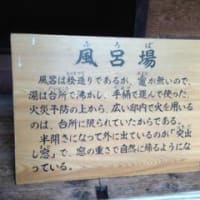 ふろば
風呂場
風呂は桧造りであるが、竈が無いので、
湯は台所で沸かし、手桶で運んで使った。
火災予防の上から、広い邸内で火を用いる
のは、台所に限られていたからである。
半開きになって外に出ているのが「突出
し窓」で、窓の重さで自然に帰るようにな
っている。